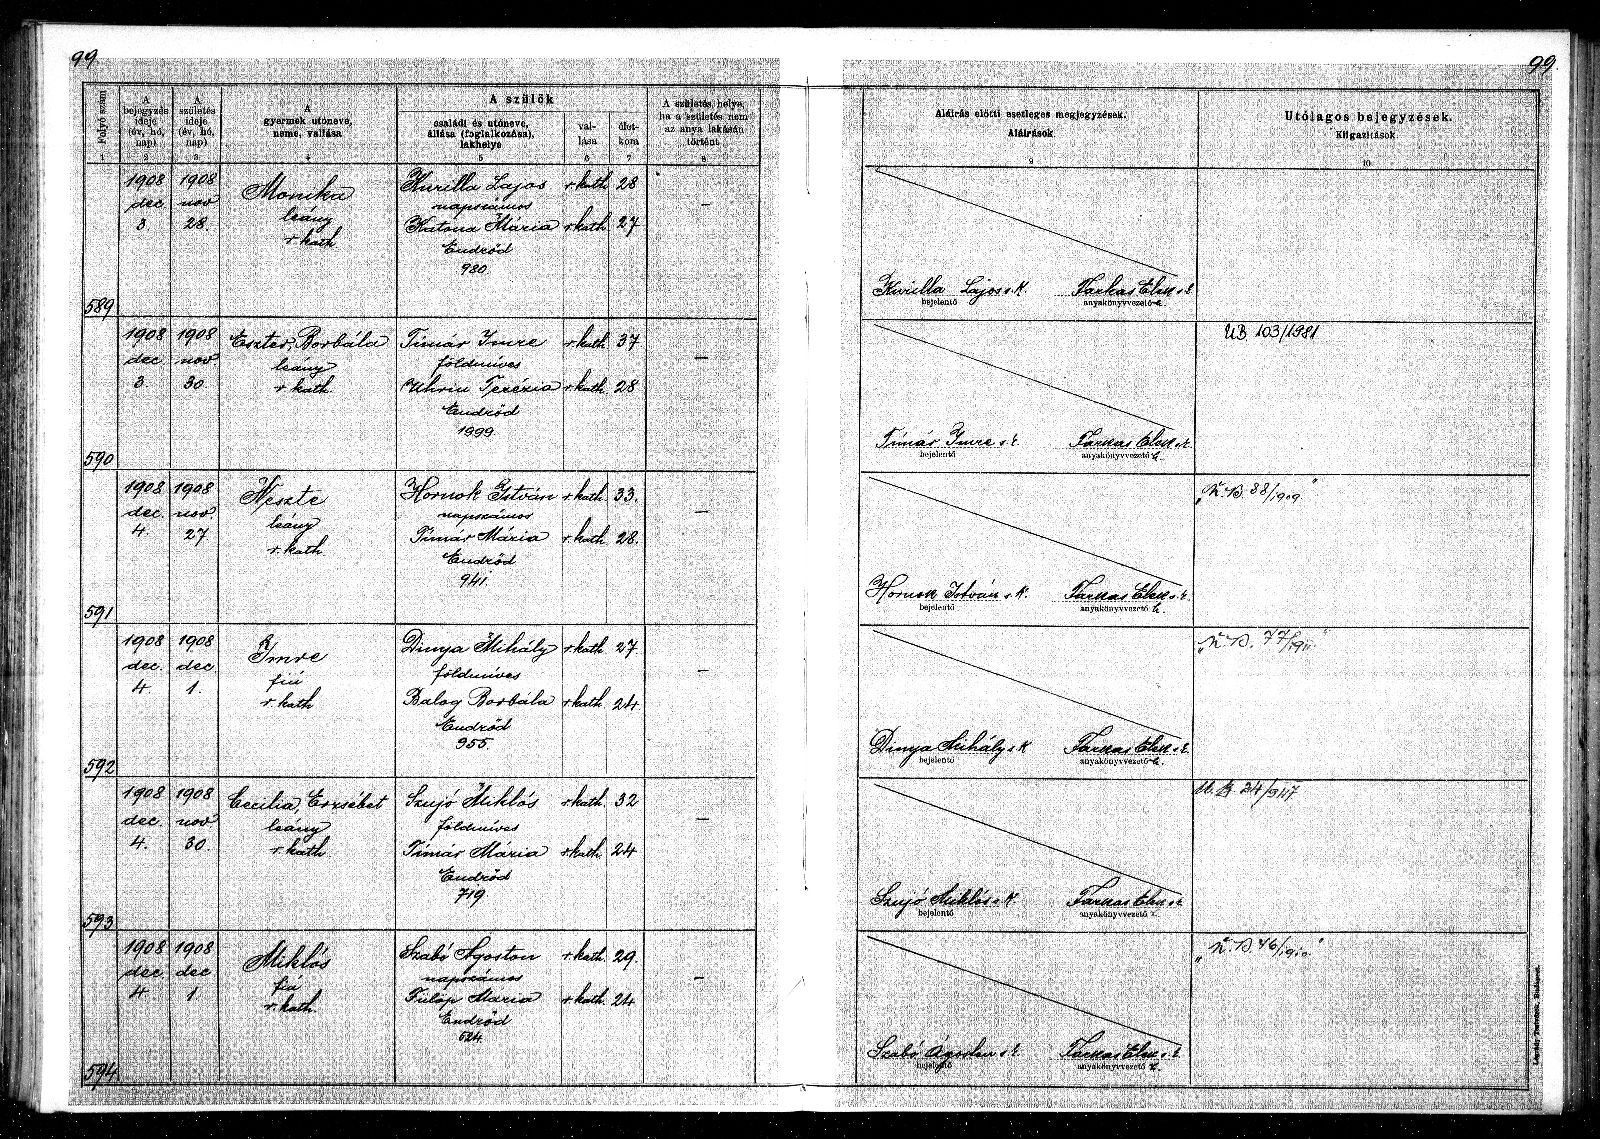 99.
99.
Folyó szám
A bejegyzés ideje (év, hó, nap)
A születés ideje (év, hó, nap)
A gyermek utóneve, neme, vallása
A szülők
családi és utóneve, állása (foglalkozása), lakhelye
val-lása
élet-kora
A születés helye, ha a születés nem az anya lakásán történt
Aláírás előtti esetleges megjegyzések.
Aláírások.
Utólagos bejegyzések.
Kiigazítások.
1 2 3 4 5 6 7 8 9 10
589
1908 dec 3
1908 nov 28.
Monika
leány
r. kath
Kurilla Lajos r. kath 28
napszámos
Katona Mária r. kath 27
Endrőd
980.
—
Kurilla Lajos s. k.
bejelentő
Farkas Elek s. k.
anyakönyvvezető h.
590
1908 dec. 3.
1908 nov. 30.
Eszter, Borbála
leány
r. kath.
Tímár Imre r. kath 37
földmíves
Uhrin Terézia r. kath. 28
Endrőd
1999.
—
Tímár Imre s. k.
bejelentő
Farkas Elek s. k.
anyakönyvvezető h.
UB. 103/1981
591
1908 dec. 4.
1908 nov. 27
Neszte
leány
r. kath.
Hornok István r. kath. 33.
napszámos
Tímár Mária r. kath. 28.
Endrőd
941.
—
Hornok István s. k.
bejelentő
Farkas Elek s. k.
anyakönyvvezető h.
88/1909
592
1908 dec. 4.
1908 dec. 1.
Imre
fiú
r. kath
Dinya Mihály r. kath 27.
földmíves
Balog Borbála r. kath 24
Endrőd
955.
—
Dinya Mihály s. k
bejelentő
Farkas Elek s. k.
anyakönyvvezető h.
593
1908 dec. 4.
1908 nov 30.
Cecilia, Erzsébet
leány
r. kath.
Szujó Miklós r. kath. 32
földmíves
Tímár Mária r. kath. 24
Endrőd
719.
—
Szujó Miklós s. k
bejelentő
Farkas Elek s. k.
anyakönyvvezető h.
594
1908 dec. 4.
1908 dec 1.
Miklós
fiú
r. kath.
Szabó Ágoston r. kath. 29.
napszámos
Fülöp Mária r. kath 24
Endrőd
524.
—
Szabó Ágoston s. k.
bejelentő
Farkas Elek s. k.
anyakönyvvezető h.